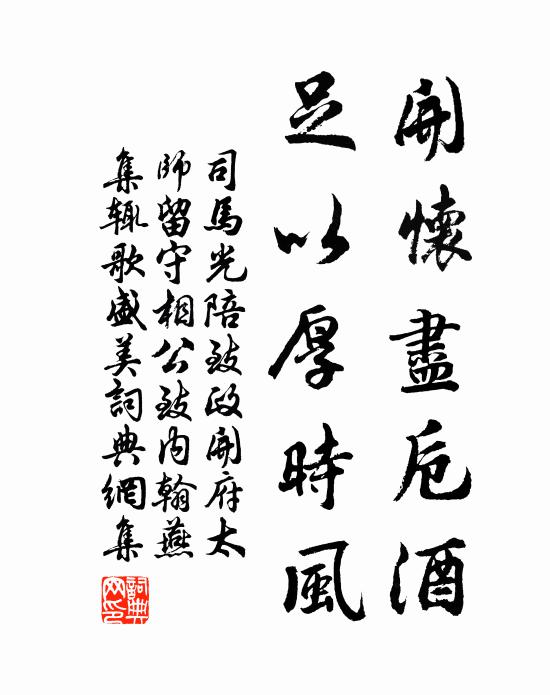 開懷盡卮酒
足以厚時風
司馬光陪致政開府太
師留守相公致內翰燕
集輒歌盛美詞典網集
詞典網印